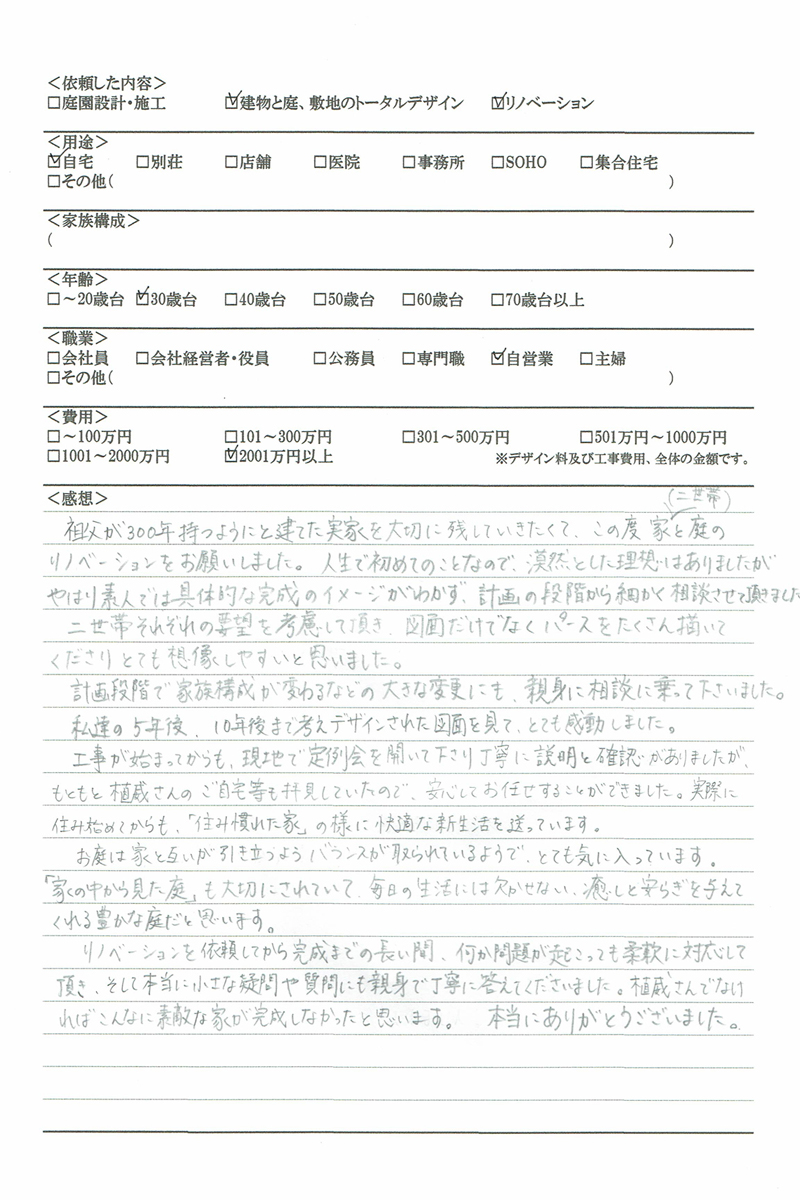 ＜依頼した内容＞
□庭園設計・施工　☑建物と庭、敷地のトータルデザイン　☑リノベーション
＜用途＞
☑自宅　□別荘　□店舗　□医院　□事務所　□SOHO　□集合住宅
□その他(　)
＜家族構成＞
(　)
＜年齢＞
□～20歳台　☑30歳台　□40歳台　□50歳台　□60歳台　□70歳台以上
＜職業＞
□会社員　□会社経営者・役員　□公務員　□専門職　☑自営業　□主婦
□その他(　)
＜費用＞
□～100万円　□101～300万円　□301～500万円　□501万円～1000万円
□1001～2000万円　☑2001万円以上　※デザイン料及び工事費用、全体の金額です。
＜感想＞
(二世帯)
祖父が300年持つようにと建てた実家を大切に残していきたくて、この度家と庭の
リノベーションをお願いしました。人生で初めてのことなので、漠然とした理想はありましたが
やはり素人では具体的な完成のイメージがわかず、計画の段階から細かく相談させて頂きました
二世帯それぞれの要望を考慮して頂き、図面だけでなくパースをたくさん描いて
くださりとても想像しやすいと思いました。
計画段階で家族構成が変わるなどの大きな変更にも、親身に相談に乗って下さいました。
私達の5年後、10年後まで考えデザインされた図面を見て、とても感動しました。
工事が始まってからも、現地で定例会を開いて下さり丁寧に説明と確認がありましたが、
もともと植蔵さんのご自宅等も拝見していたので、安心してお任せすることができました。実際に
住み始めてからも、「住み慣れた家」の様に快適な新生活を送っています。
お庭は家と互いが引き立つようバランスが取られているようで、とても気に入っています。
「家の中から見た庭」も大切にされていて、毎日の生活には欠かせない、癒しと安らぎを与えて
くれる豊かな庭だと思います。
リノベーションを依頼してから完成までの長い間、何か問題が起こっても柔軟に対応して
頂き、そして本当に小さな疑問や質問にも親身で丁寧に答えてくださいました。植蔵さんでなけ
ればこんなに素敵な家が完成しなかったと思います。　本当にありがとうございました。